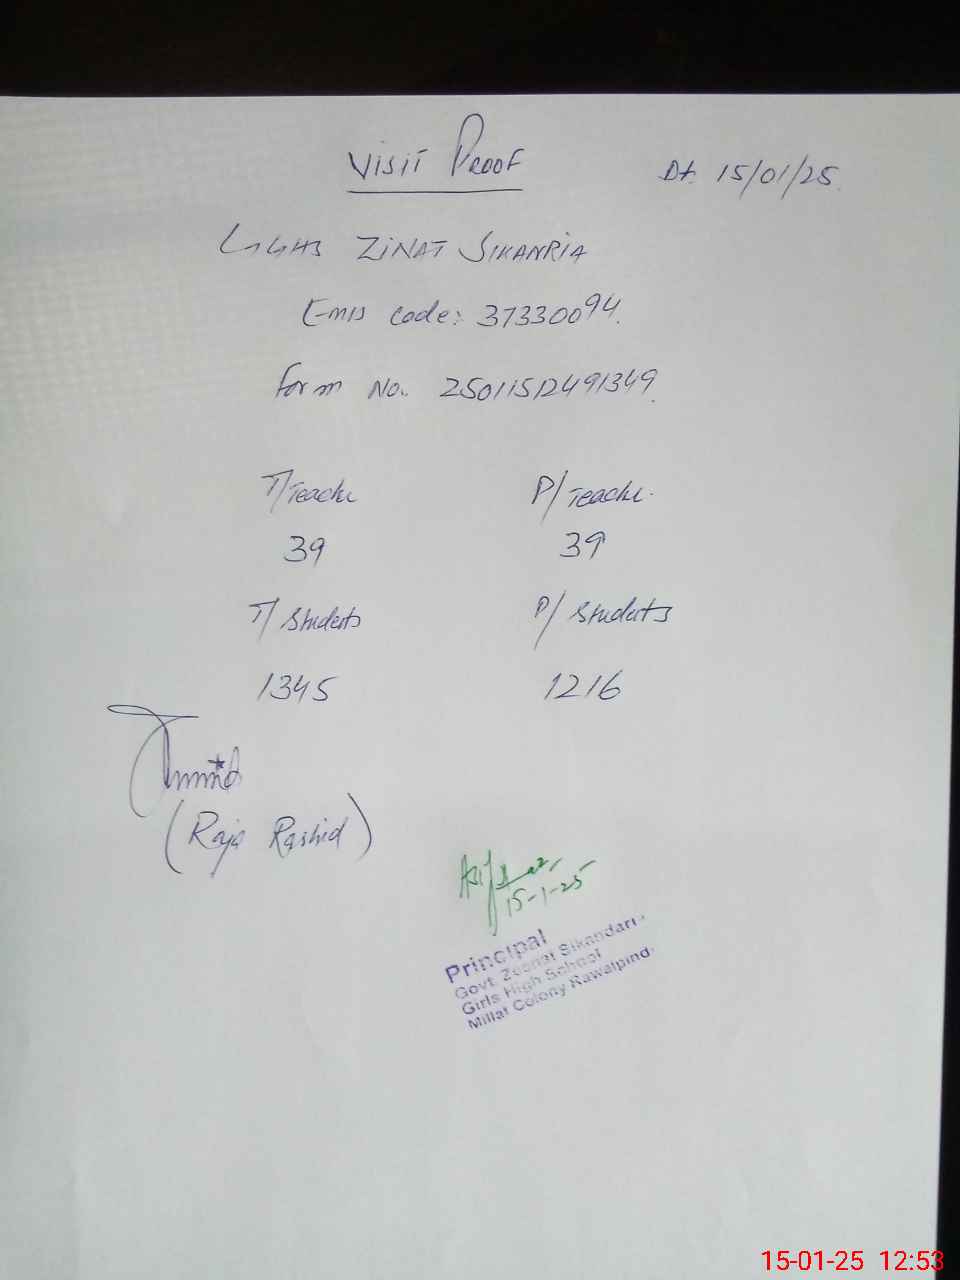 Visit Proof
Dt. 15/01/25.
GGHS ZINAT SIKANRIA
Emis Code: 37330094.
Form No. 25011512491349.
T/Teache P/Teache.
39 39
T/Students P/Students
1345 1216
(Raja Rashid)
15-1-25
Principal
Govt. Zeenat Sikandari
Girls High School
Millat Colony Rawalpind
15-01-25 12:53